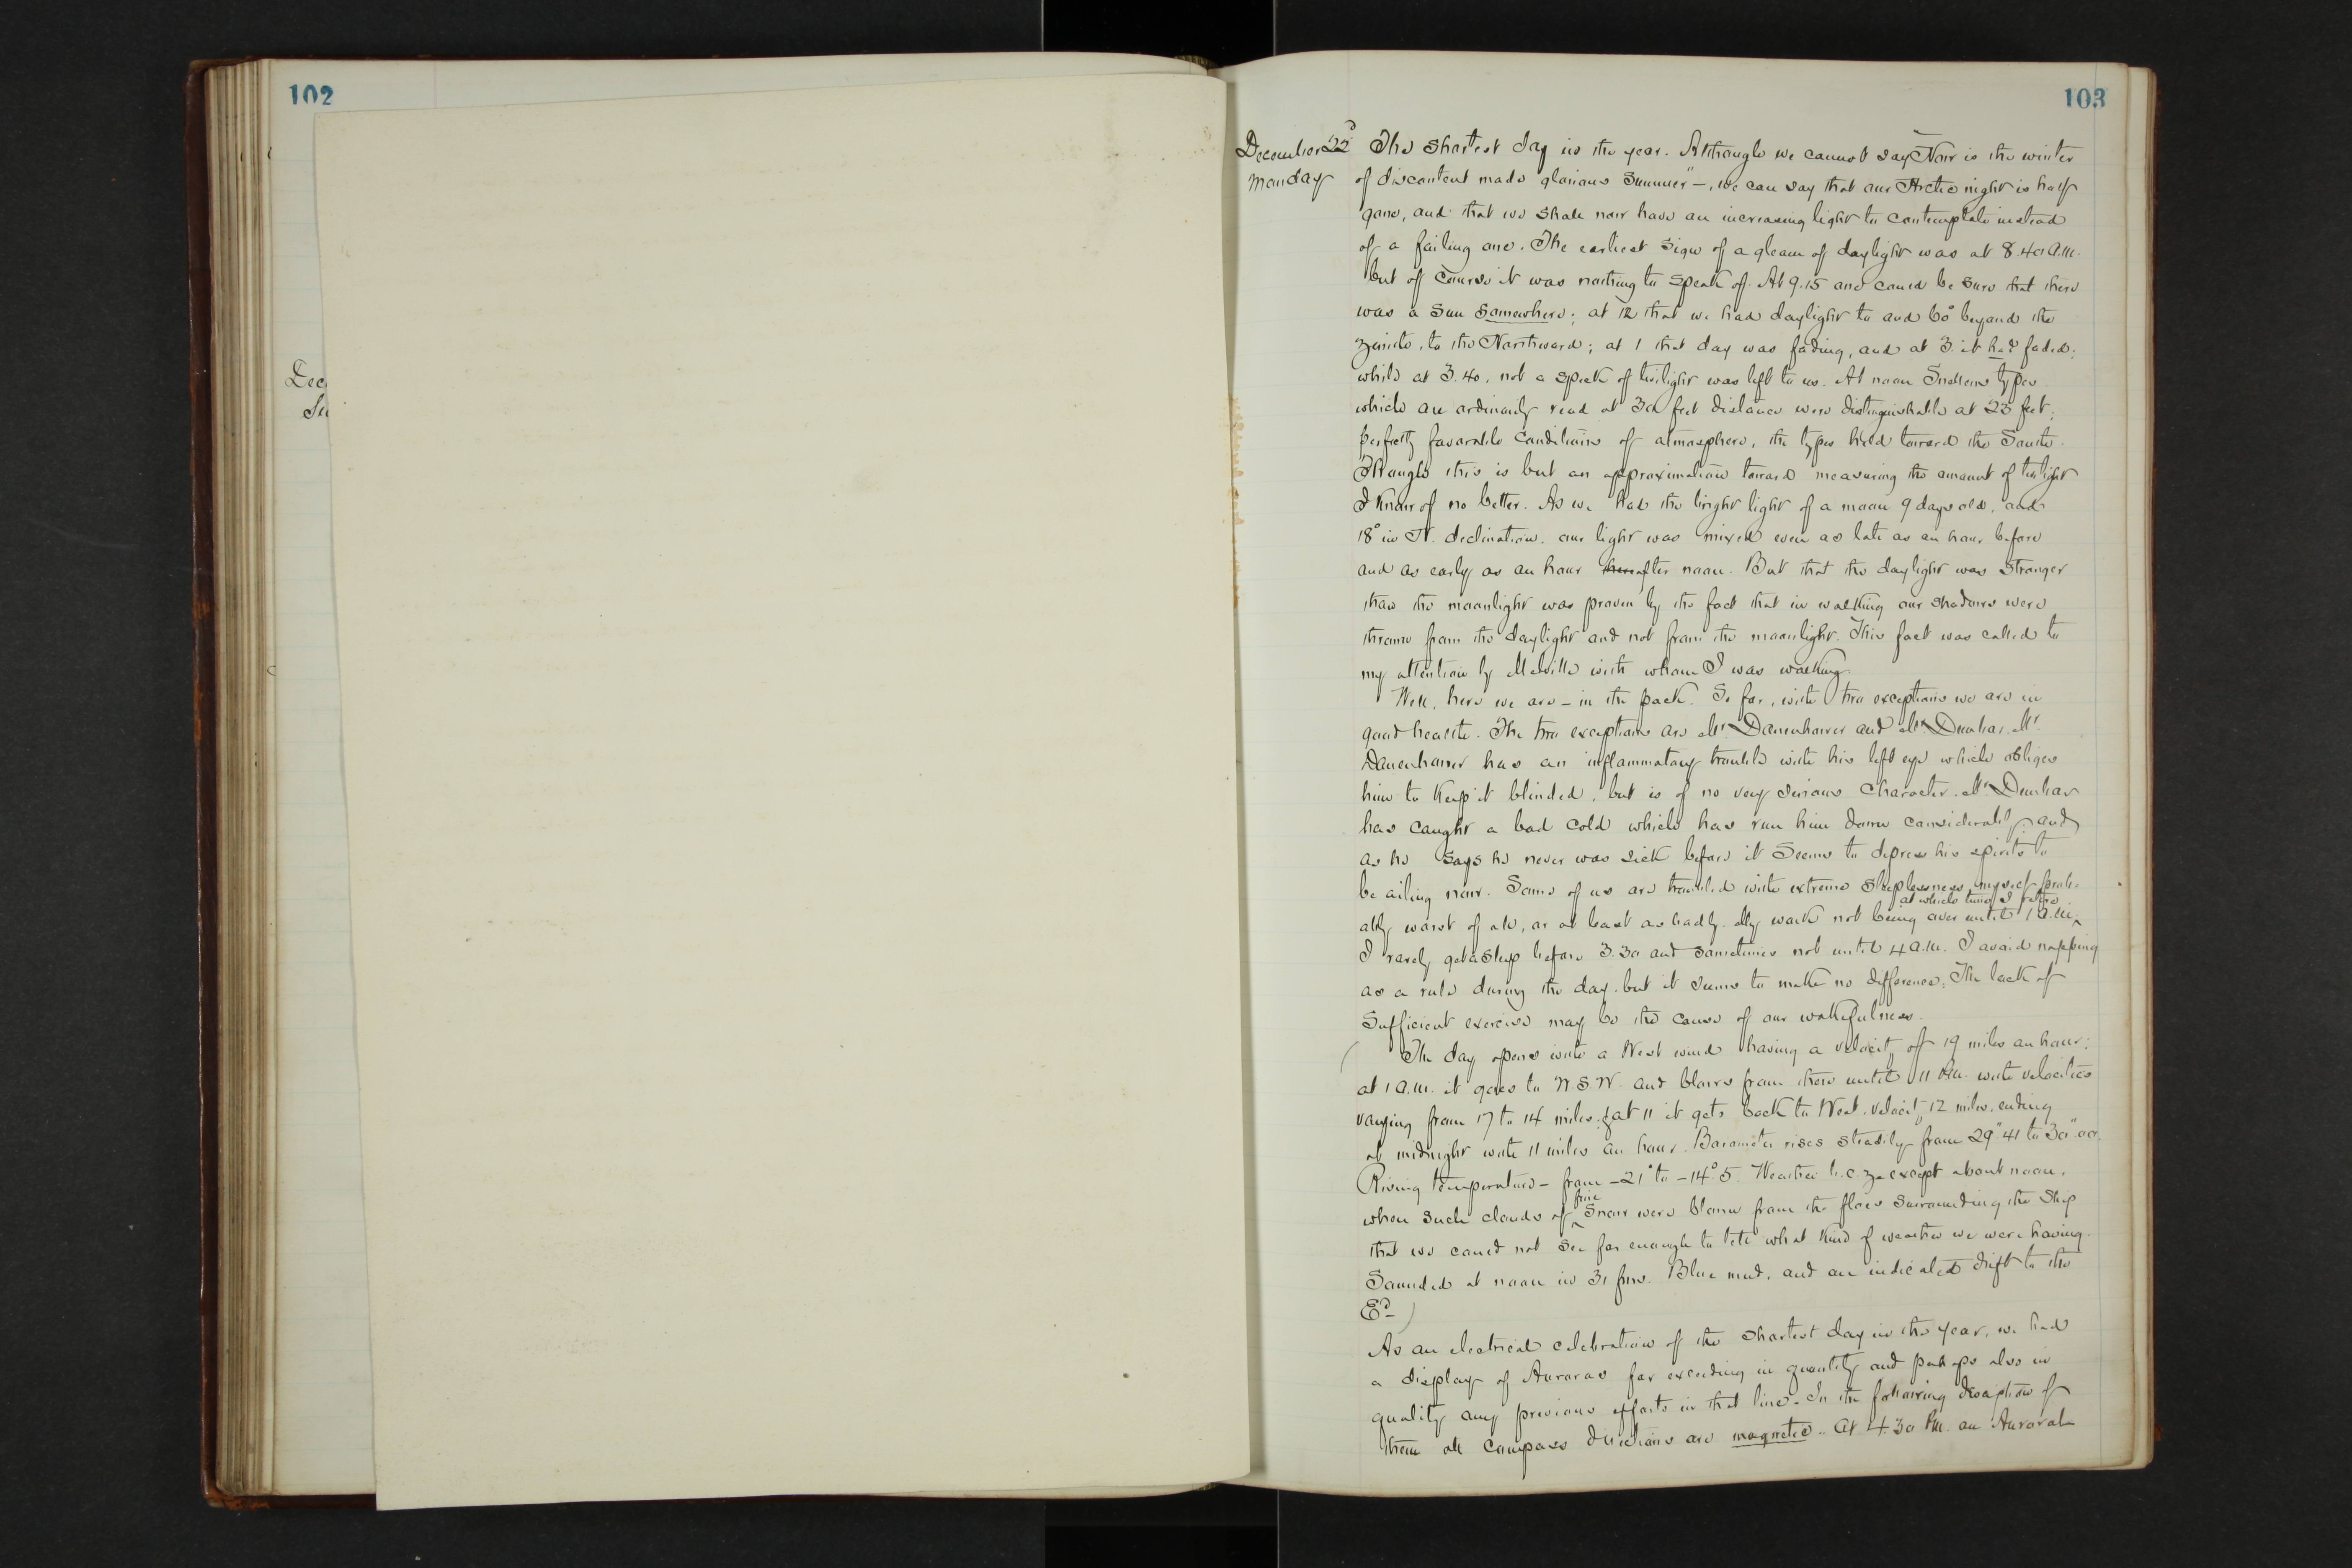 102
Dec
Su
103
December 22d
Monday
The shortest day in the year. Although we cannot say "Now is the winter
of discontent made glorious Summer" –, we can say that our Arctic night is half
gone, and that we shall now have an increasing light to contemplate instead
of a failing one. The earliest sign of a gleam of daylight was at 8.40 a.m.
but of course it was nothing to speak of. At 9.15 one could be sure that there
was a Sun somewhere; at 12 that we had daylight to and 60° beyond the
zenith, to the Northward; at 1 that day was fading, and at 3. it had faded;
while at 3.40, not a speck of twilight was left to us. At noon Snellens types
which are ordinarily read at 30 feet distance were distinguishable at 23 feet;
perfectly favorable conditions of atmosphere, the types held toward the South.
Though this is but an approximation toward measuring the amount of twilight
I know of no better. As we had the bright light of a moon 9 days old, and
18° in N. declination, our light was mixed even as late as an hour before
and as early as an hour after noon. But that the daylight was stronger
than the moonlight was proven by the fact that in walking our shadows were
thrown from the daylight and not from the moonlight. This fact was called to
my attention by Melville with whom I was walking.
Well, here we are – in the pack. So far, with two exceptions we are in
good health. The two exceptions are Mr. Danenhower and Mr. Dunbar. Mr.
Danenhower has an inflammatory trouble with his left eye which obliges
him to keep it blinded, but is of no very serious character. Mr. Dunbar
has caught a bad cold which has run him down considerably, and
as he says he never was sick before it seems to depress his spirits to
be ailing now. Some of us are troubled with extreme sleeplessness, myself prob-
ably worst of all, or at least as badly. My work not being over until 1 a.m. at which time I retire
I rarely get asleep before 3.30 and sometimes not until 4 a.m. I avoid napping
as a rule during the day, but it seems to make no difference. The lack of
sufficient exercise may be the cause of our wakefulness.
(The day opens with a West wind having a velocity of 19 miles an hour;
at 1 a.m. it goes to W.S.W. and blows from there until 11 P.M. with velocities
varying from 17 to 14 miles; at 11 it gets back to West, velocity 12 miles, ending
at midnight with 11 miles an hour. Barometer rises steadily from 29".41 to 30".00.
Rising temperature – from –21° to –14°.5. Weather b.c.z. except about noon,
when such clouds of fine snow were blown from the floes surrounding the ship
that we could not see far enough to tell what kind of weather we were having.
Sounded at noon in 31 fms. Blue mud, and an indicated drift to the
Ed.)
As an electrical celebration of the shortest day in the year, we had
a display of Auroras far exceeding in quantity and perhaps also in
quality any previous efforts in that line. In the following description of
them all compass directions are magnetic. At 4.30 P.M. an Auroral